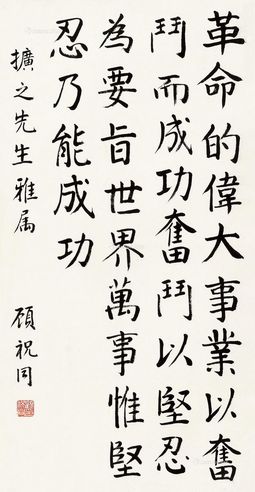 革命的偉大事業以奮
鬥而成功奮鬥以堅忍
為要旨世界萬事惟堅
忍乃能成功
擴之先生雅属
顧祝同